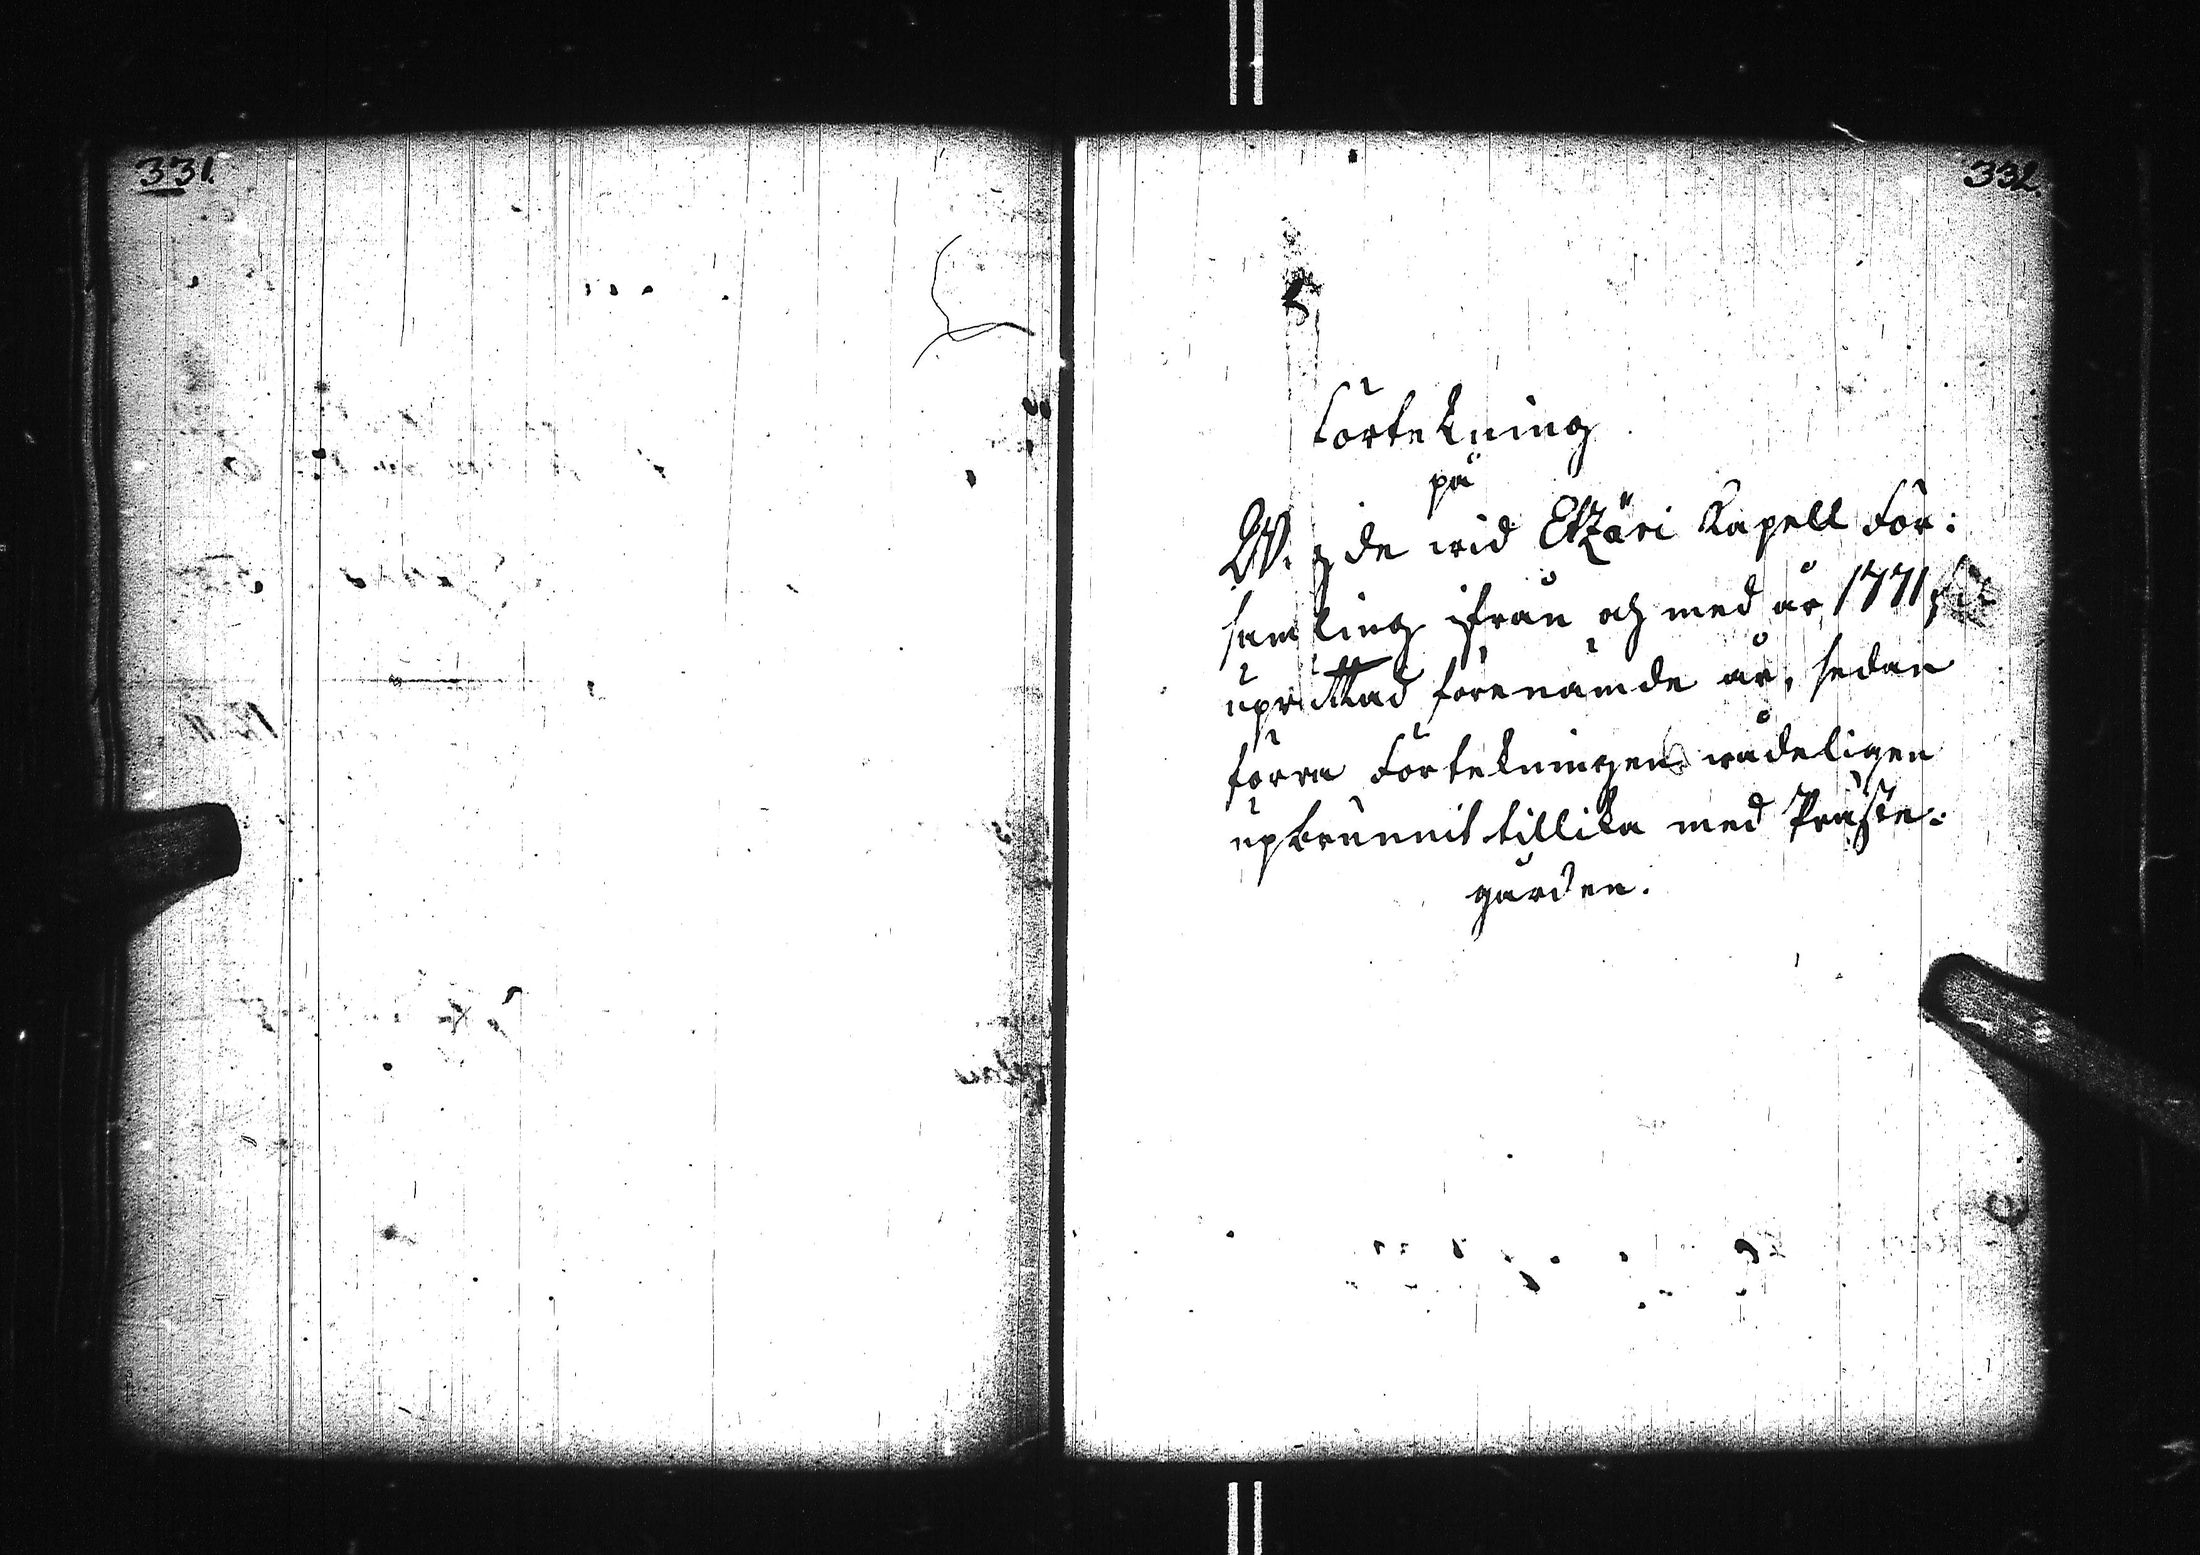 331.
332.
Förtekning
på
Wigde wid Etzäri Kapell För:
samling ifrån och med år 1771,
uprättad förenämde år, sedan
förra Förtekningen wådeligen
upbrunnit tillika med Präste:
gården.